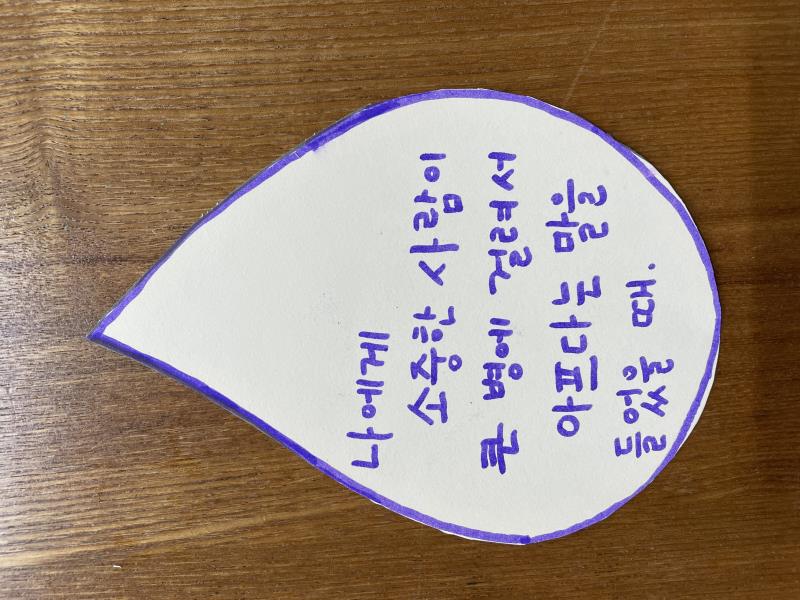 나에게
소중한 사람이
큰 병에 걸려서
아프다는 말을
들었을 때.